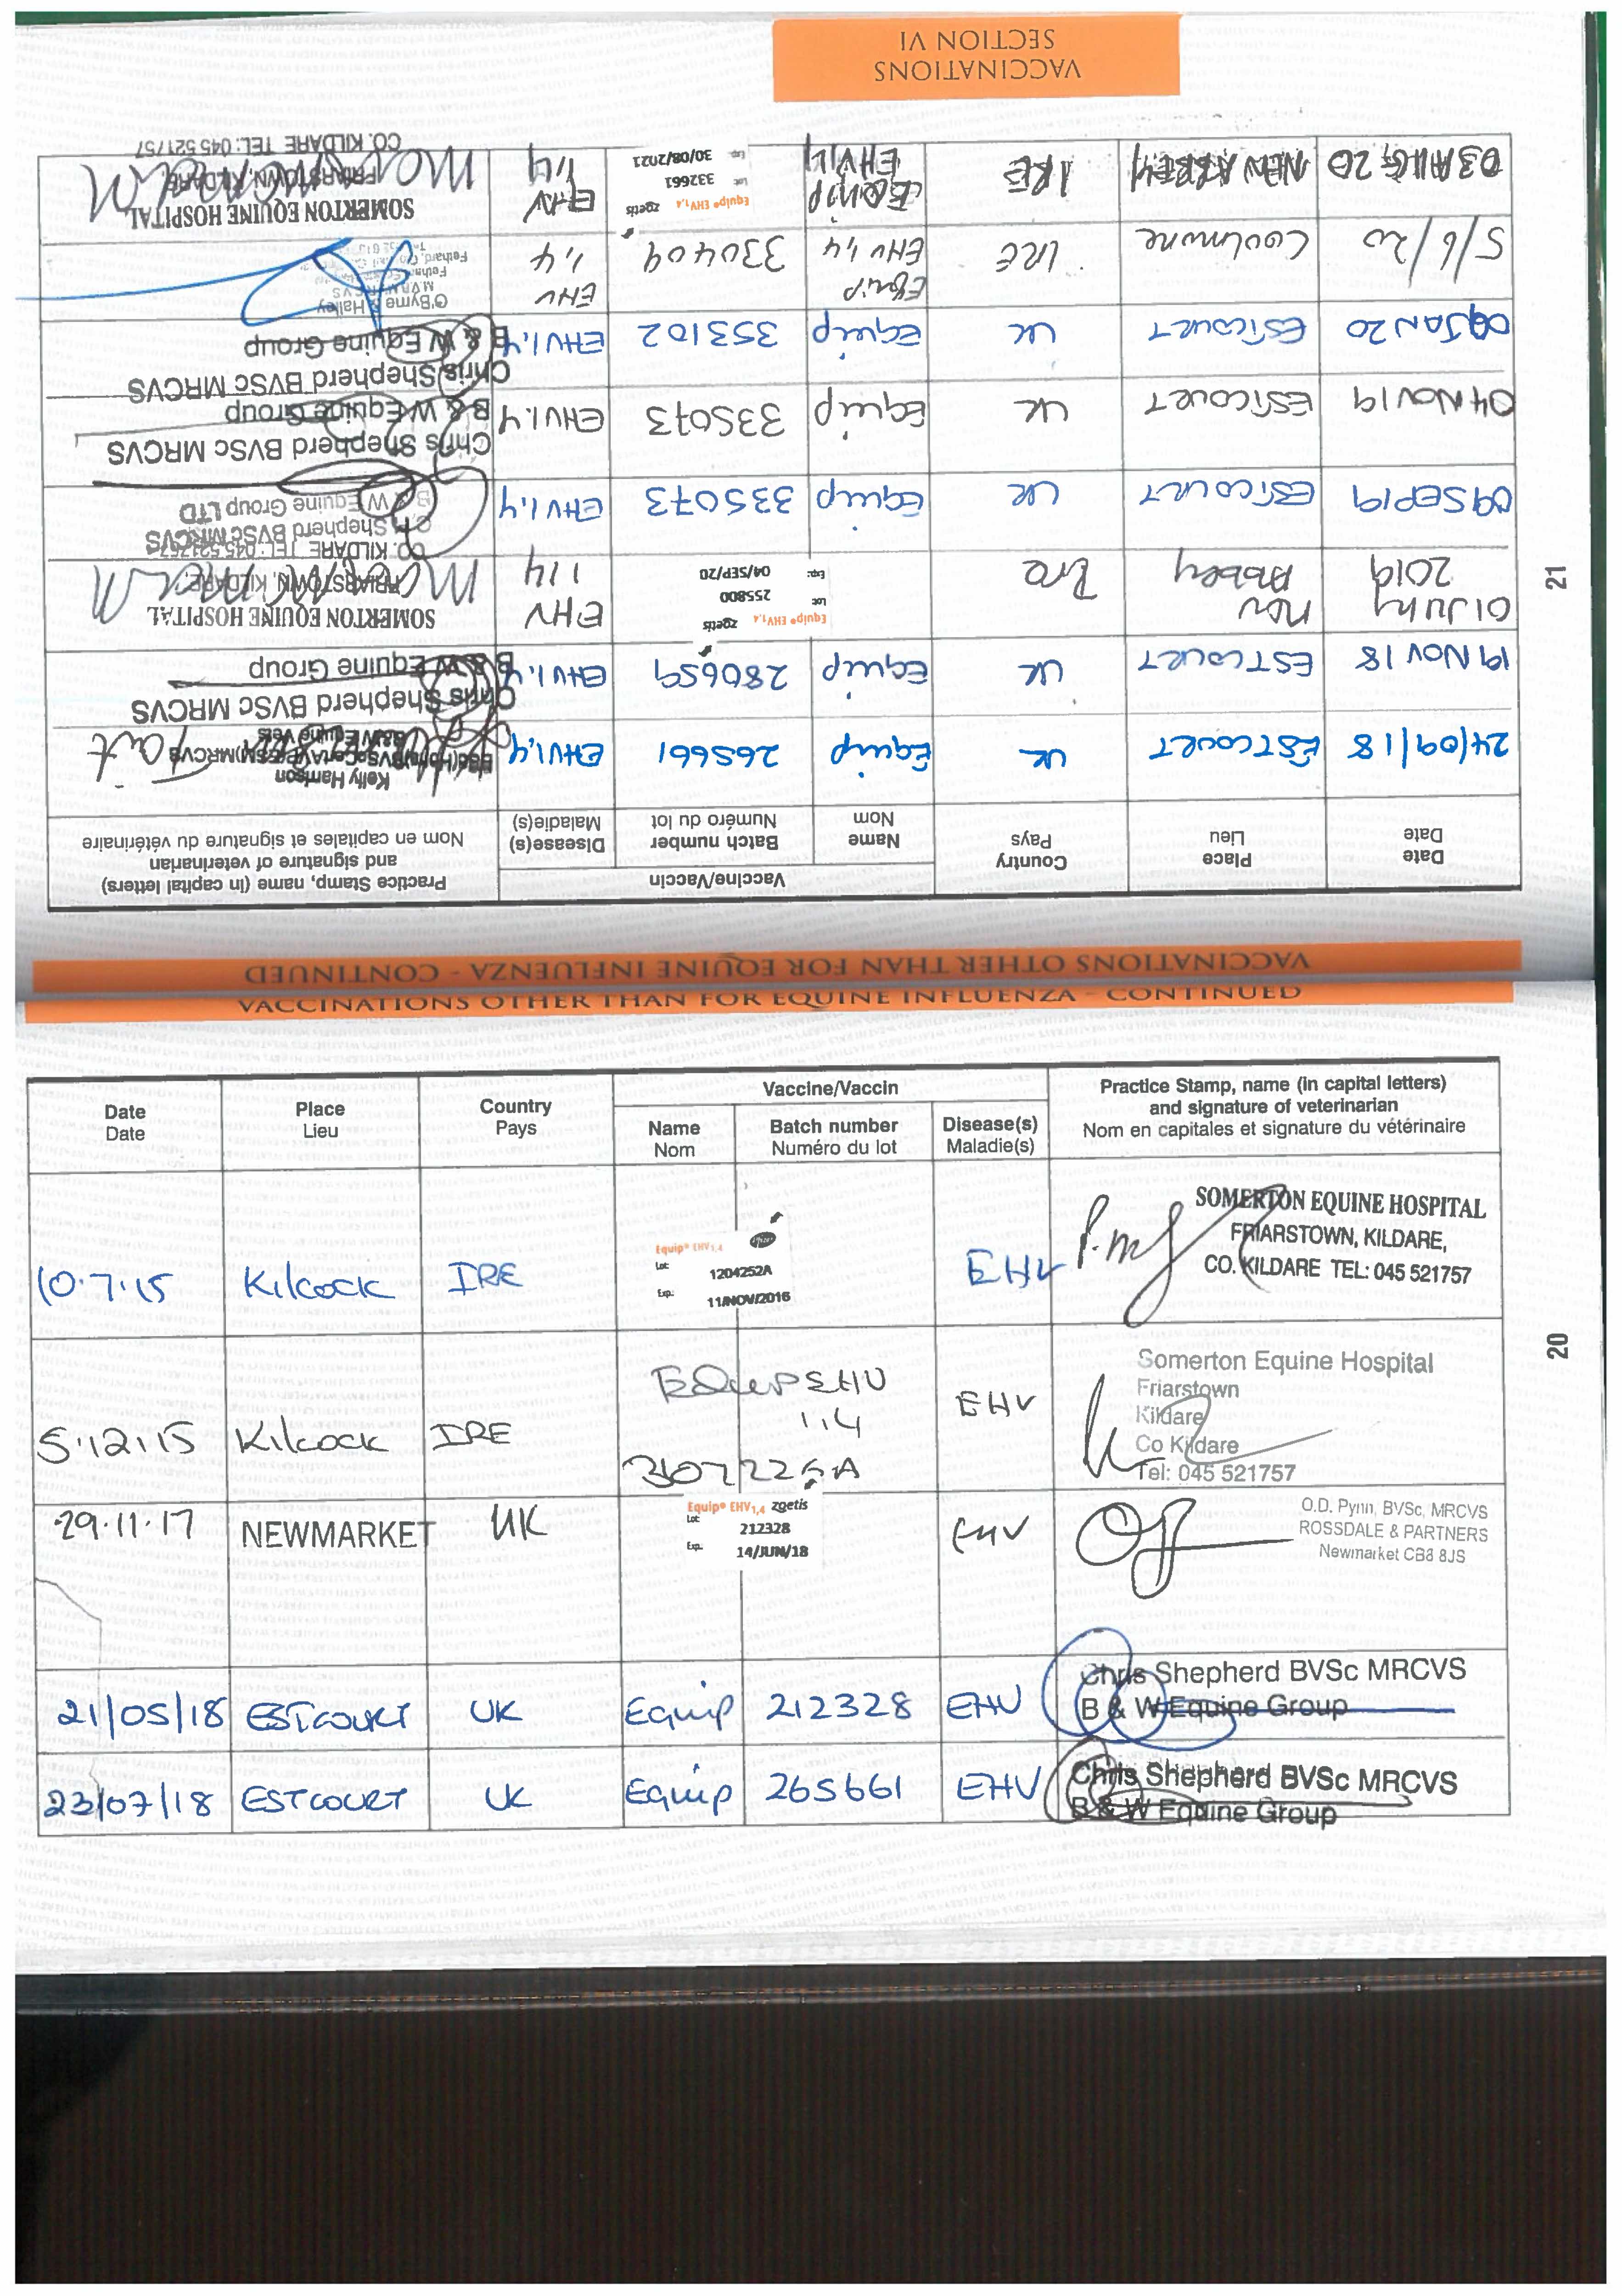 VACCINATIONS OTHER THAN FOR EQUINE INFLUENZA - CONTINUED
Date
Date
Place
Lieu
Country
Pays
Vaccine/Vaccin
Name
Nom
Batch number
Numéro du lot
Disease(s)
Maladie(s)
Practice Stamp, name (in capital letters)
and signature of veterinarian
Nom en capitales et signature du vétérinaire
10.7.15 Kilcock IRE
Equip® EHV1,4
Lot: 1204252A
Exp.: 11/NOV/2016
EHV
SOMERTON EQUINE HOSPITAL
FRIARSTOWN, KILDARE,
CO. KILDARE TEL: 045 521757
5.12.15 Kilcock IRE
Equip EHV
1,4
EHV
Somerton Equine Hospital
Friarstown
Kildare
Co Kildare
Tel: 045 521757
29.11.17 NEWMARKET UK
Equip® EHV1,4 zoetis
Lot: 212328
Exp. 14/JUN/18
EHV
O.D. Pynn, BVSc, MRCVS
ROSSDALE & PARTNERS
Newmarket CB8 8JS
21/05/18 ESTCOURT UK Equip 212328 EHV
Chris Shepherd BVSc MRCVS
B & W Equine Group
23/07/18 ESTCOURT UK Equip 265661 EHV
Chris Shepherd BVSc MRCVS
B & W Equine Group
20
VACCINATIONS OTHER THAN FOR EQUINE INFLUENZA - CONTINUED
Date
Date
Place
Lieu
Country
Pays
Vaccine/Vaccin
Name
Nom
Batch number
Numéro du lot
Disease(s)
Maladie(s)
Practice Stamp, name (in capital letters)
and signature of veterinarian
Nom en capitales et signature du vétérinaire
24/09/18 ESTCOURT UK Equip 265661 EHV1,4
Kelly Harrison
B&W Equine Vets
19 NOV 18 ESTCOURT UK Equip 280659 EHV1,4
Chris Shepherd BVSc MRCVS
B & W Equine Group
01 July
2019
New
Abbey
Ire
Equip® EHV1,4 zoetis
Lot: 255800
Exp: 04/SEP/20
EHV
1,4
SOMERTON EQUINE HOSPITAL
FRIARSTOWN, KILDARE,
CO. KILDARE TEL: 045 521757
09 SEP 19 ESTCOURT UK Equip 335073 EHV1,4
Chris Shepherd BVSc MRCVS
B & W Equine Group LTD
04 NOV 19 ESTCOURT UK Equip 335073 EHV1,4
Chris Shepherd BVSc MRCVS
B & W Equine Group
09 JAN 20 ESTCOURT UK Equip 353102 EHV1,4
Chris Shepherd BVSc MRCVS
B & W Equine Group
5/6/20 Coolmore IRE
Equip
EHV 1,4
330404
EHV
1,4
O'Byrne & Halley
03 AUG 20 NEW ABBEY IRE
Equip
EHV 1,4
Equip® EHV1,4 zoetis
Lot: 332661
Exp: 30/08/2021
EHV
1,4
SOMERTON EQUINE HOSPITAL
FRIARSTOWN, KILDARE,
CO. KILDARE TEL: 045 521757
21
VACCINATIONS
SECTION VI